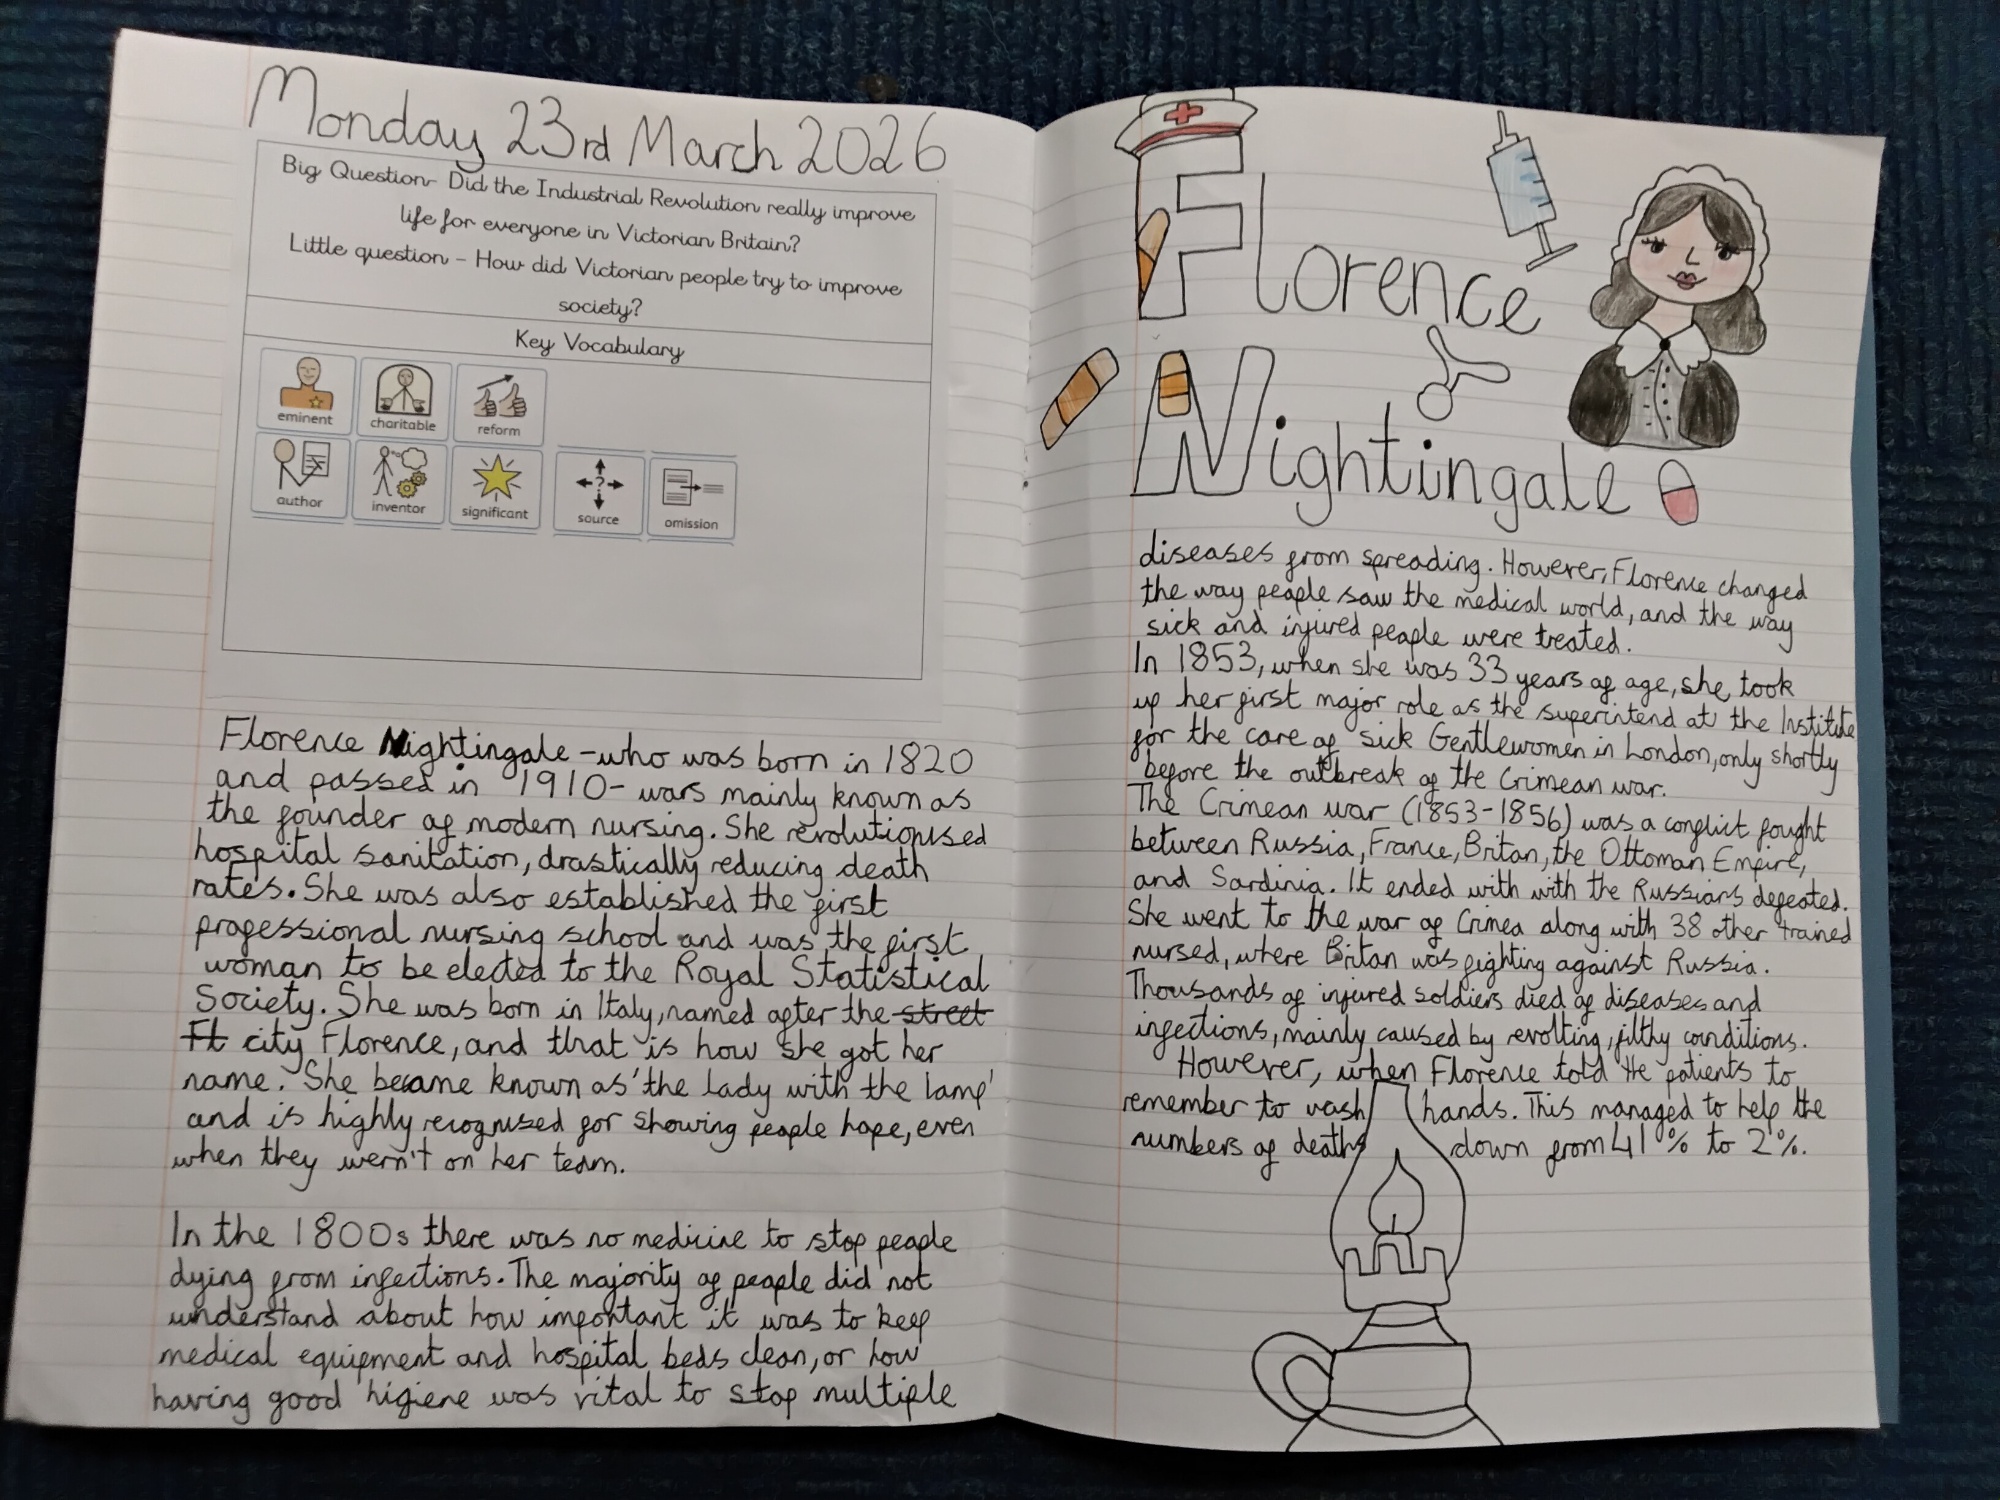 Monday 23rd March 2026
Big Question- Did the Industrial Revolution really improve
life for everyone in Victorian Britain?
Little question - How did Victorian people try to improve
society?
Key Vocabulary
eminent
charitable
reform
author
inventor
significant
source
omission
Florence Nightingale -who was born in 1820
and passed in 1910- wars mainly known as
the founder of modern nursing. She revolutionised
hospital sanitation, drastically reducing death
rates. She was also established the first
professional nursing school and was the first
woman to be elected to the Royal Statistical
Society. She was born in Italy, named after the street
Fl city Florence, and that is how she got her
name. She became known as 'the lady with the lamp'
and is highly recognised for showing people hope, even
when they wern't on her team.
In the 1800s there was no medicine to stop people
dying from infections. The majority of people did not
understand about how important it was to keep
medical equipment and hospital beds clean, or how
having good higiene was vital to stop multiple
Florence
Nightingale
diseases from spreading. However, Florence changed
the way people saw the medical world, and the way
sick and injured people were treated.
In 1853, when she was 33 years of age, she took
up her first major role as the superintend at the Institute
for the care of sick Gentlewomen in London, only shortly
before the outbreak of the Crimean war.
The Crimean war (1853-1856) was a conflict fought
between Russia, France, Britan, the Ottoman Empire,
and Sardinia. It ended with with the Russians defeated.
She went to the war of Crimea along with 38 other trained
nursed, where Britan was fighting against Russia.
Thousands of injured soldiers died of diseases and
infections, mainly caused by revolting, filthy conditions.
However, when Florence told He patients to
remember to wash hands. This managed to help the
numbers of deaths down from 41% to 2%.